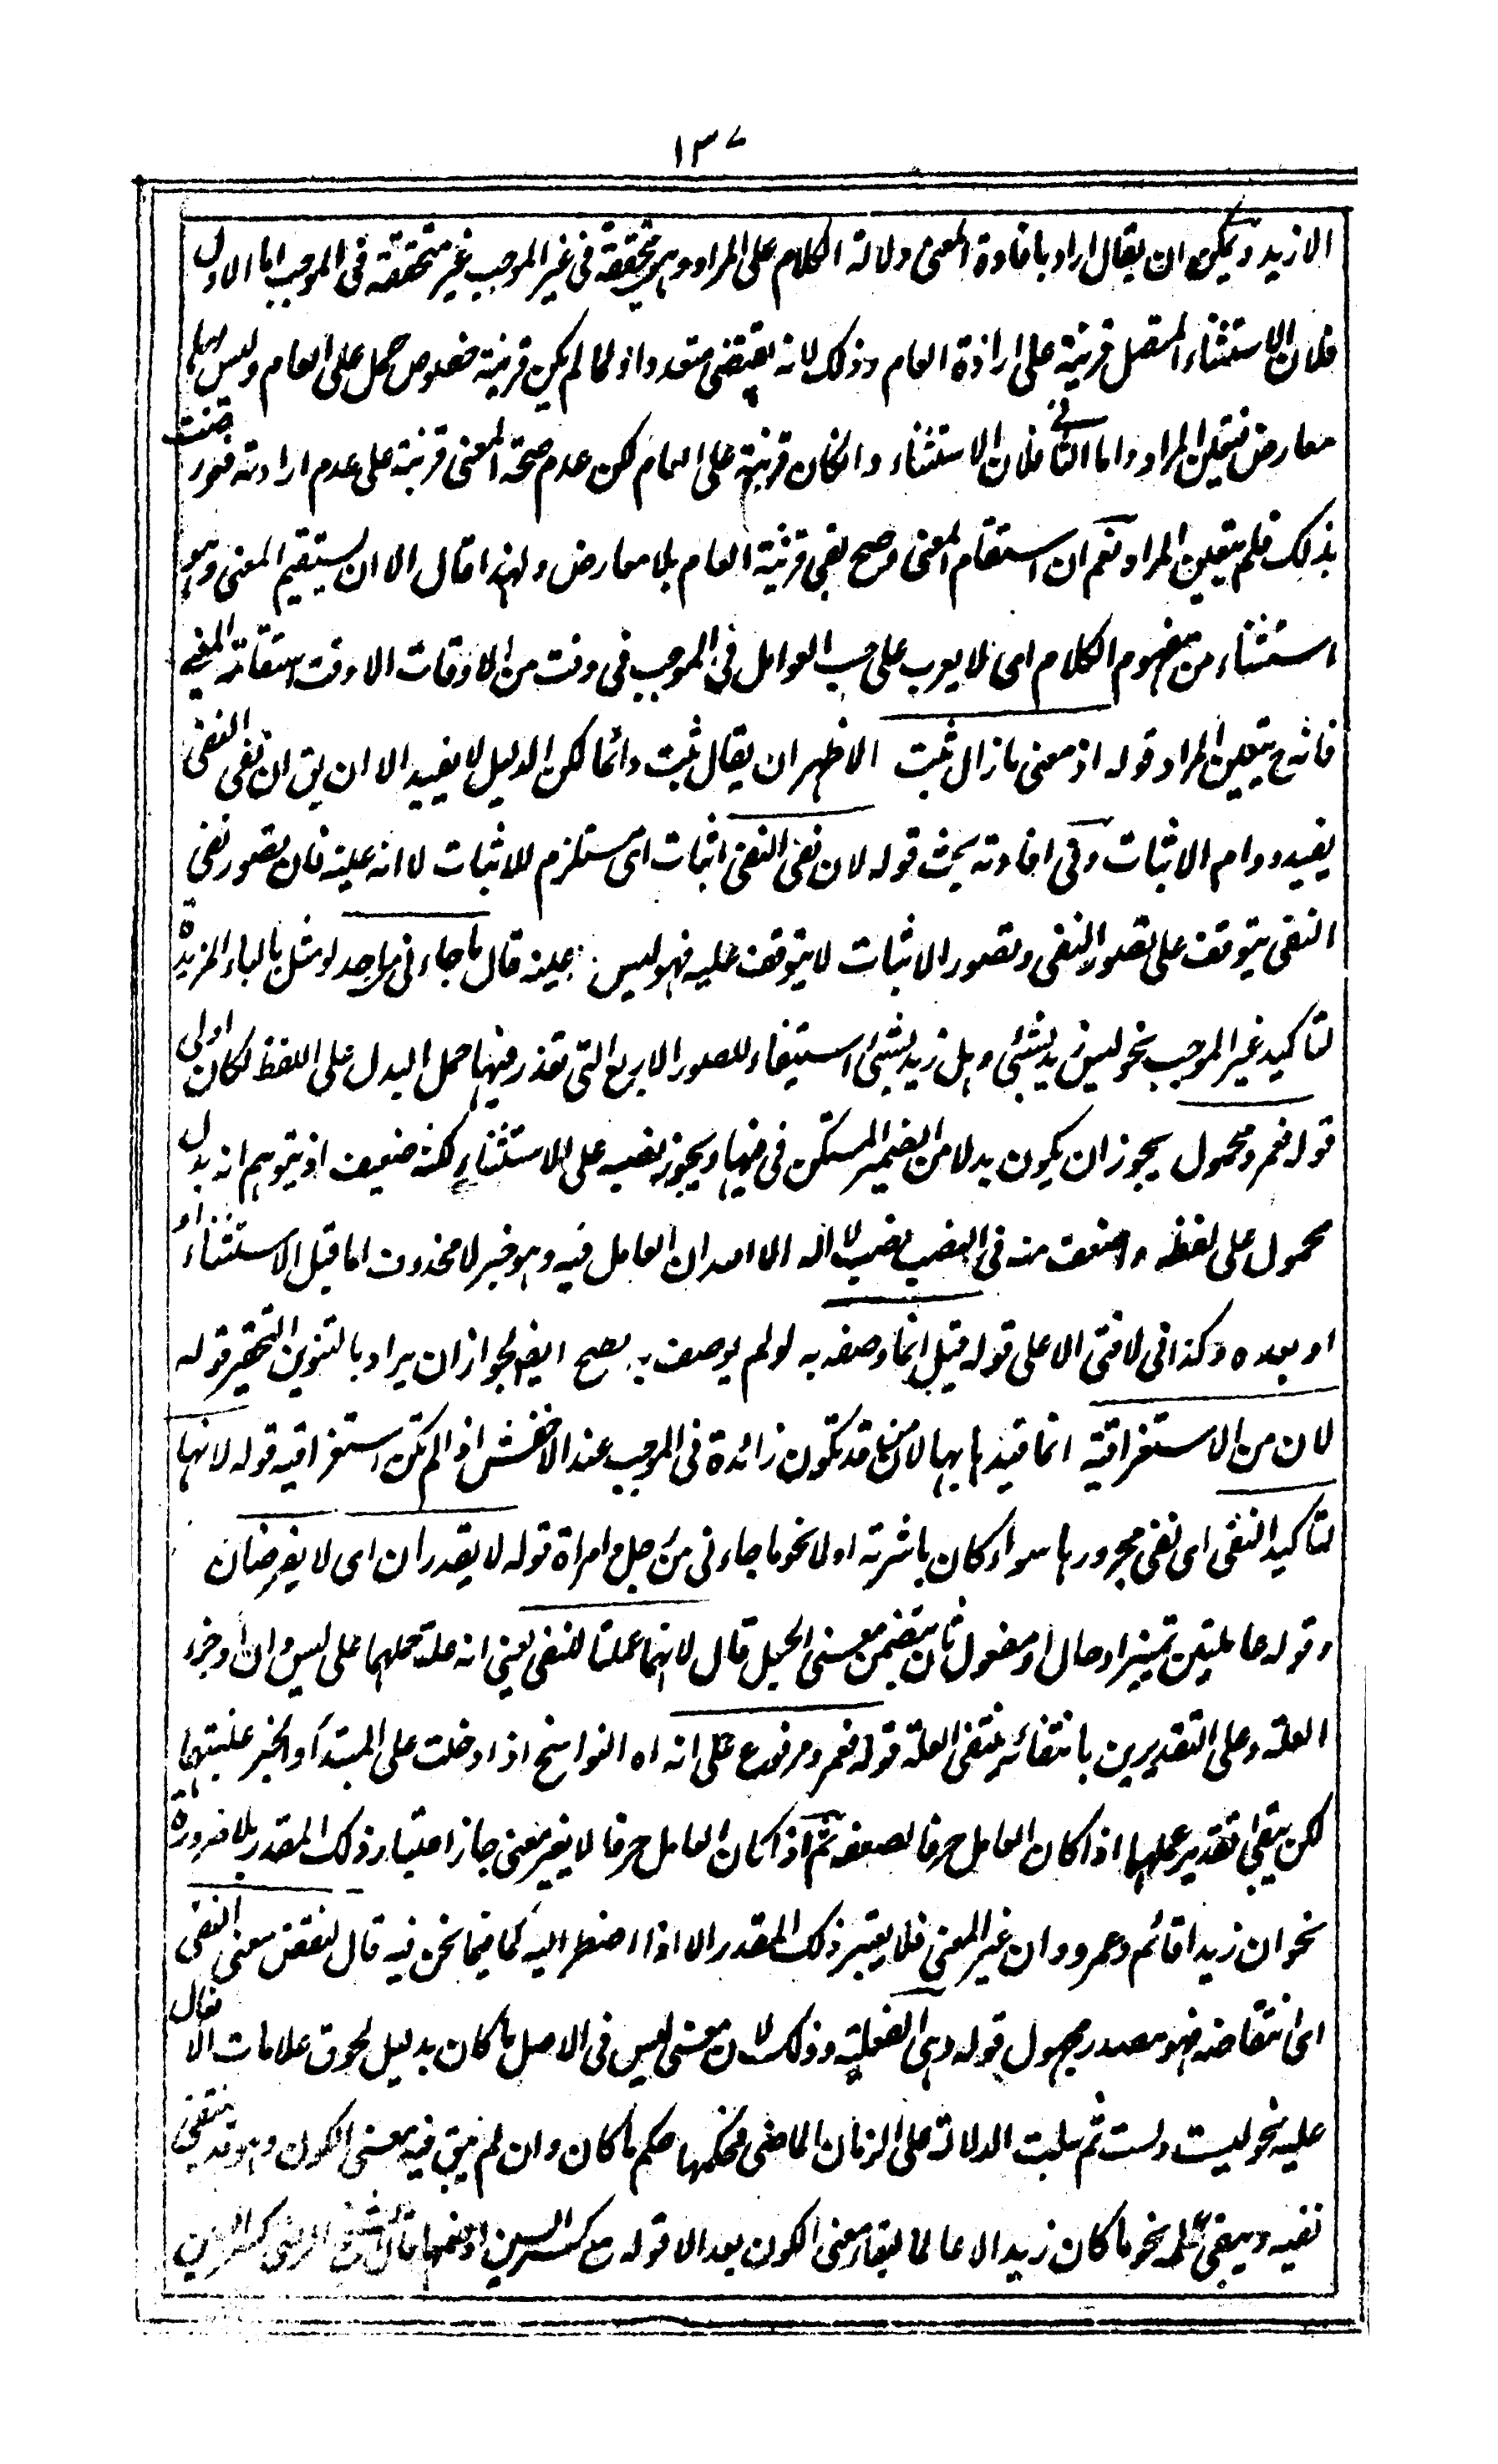 ١٣٧
الا زيد ويمكن ان يقال اراد بافادة المعنى دلالة الكلام على المراد وهو متحققة فى غير الموجب غير متحققة فى الموجب اما الاول
فلان الاستثناء المتصل قرينة على ارادة العام وذلك لانه يقتضى متعددا ولما لم يكن قرينة خصوص حمل على العام وليس لها
معارض فتعين المراد واما الثانى فلان الاستثناء وانكان قرينة على العام لكن عدم صحة المعنى قرينة على عدم ارادته فعورضت
بذلك فلم يتعين المراد نعم ان استقام المعنى وصح بقى قرينة العام بلا معارض ولهذا قال الا ان يستقيم المعنى وهو
استثناء من مفهوم الكلام اى لا يعرب على حسب العوامل فى الموجب فى وقت من الاوقات الا وقت استقامة المعنى
فانه ح يتعين المراد قوله اذ معنى مازال ثبت الاظهر ان يقال ثبت دائما لكن الدليل لا يفيد الا ان يق ان نفى النفى
يفيد دوام الاثبات وفى افادته بحث قوله لان نفى النفى اثبات اى مستلزم للاثبات لا انه عينه فان تصور نفى
النفى يتوقف على تصور النفى وتصور الاثبات لا يتوقف عليه فهو ليس بعينه قال ما جاءنى من احد لو مثل بالباء المزيدة
لتاكيد غير الموجب نحو ليس زيد بشئ وهل زيد بشئ استيفاء للصور الاربع التى تعذر فيها حمل البدل على اللفظ لكان اولى
قوله فعمرو محمول يجوز ان يكون بدلا من الضمير المستكن فى فيها ويجوز نصبه على الاستثناء لكنه ضعيف اذ يتوهم انه بدل
محمول على لفظه واضعف منه فى النصب نصب لا اله الا الله لان العامل فيه وهو خبر لا محذوف اما قبل الاستثناء او
او بعده وكذا فى لا فتى الا على قوله قيل انما وصفه به لو لم يوصف به يصح ايضا لجواز ان يراد بالتنوين التحقير قوله
لان من الاستغراقية انما قيدها بها لان من قد تكون زائدة فى الموجب عند الاخفش اذا لم تكن استغراقيه قوله لانها
لتاكيد النفى اى نفى مجرورها سواء كان باشرته اولا نحو ما جاءنى من رجل وامراة قوله لا يقدران اى لا يفرضان
وقوله عاملتين تميزا وحال او مفعول ثان بتضمن معنى الجعل قال لانهما عملتا للنفى يعنى انه علة حملهما على ليس وان او جزء
العلة وعلى التقديرين بانتفائه ينتفى العلة قوله فعمرو مرفوع على انه اه النواسخ اذا دخلت على المبتدأ والخبر غلبتهما
لكن يبقى تقدير عملها اذا كان العامل حرفا لضعفه ثم اذا كان العامل حرفا لا يغير معنى جاز اعتبار ذلك المقدر بلا ضرورة
نحو ان زيدا قائم وعمرو وان غير المعنى فلا يعتبر ذلك المقدر الا اذا اضطر اليه كما فيما نحن فيه قال لنقض معنى النفى
اى انتقاضه فهو مصدر مجهول قوله وهى الفعلية وذلك لان معنى ليس فى الاصل ما كان بدليل لحوق علامات الافعال
عليه نحو ليست ولست ثم سلبت الدلالة على الزمان الماضى فحكمها حكم ما كان وان لم يبق فيه معنى الكون وهو قد ينتقض
نفيه ويبقى عمله نحو ما كان زيد الا عالما لبقاء معنى الكون بعد الا قوله مع كسر السين او ضمها قال الشيخ الرضى كسر السين